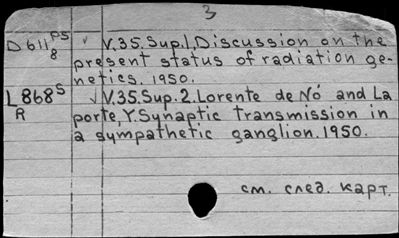 3
D611 PS 8 √ V.35.Sup.1.Discussion on the
present status of radiation ge-
netics. 1950.
L868 S R √ V.35.Sup.2.Lorente de Nó and La
porte,Y.Synaptic transmission in
a sympathetic ganglion.1950.
см. след. карт.